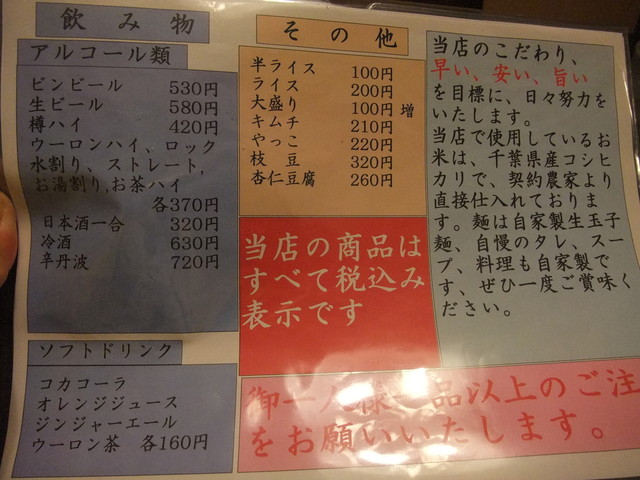 飲み物
アルコール類
ビンビール 530円
生ビール 580円
樽ハイ 420円
ウーロンハイ、ロック
水割り、ストレート,
お湯割り,お茶ハイ
各370円
日本酒一合 320円
冷酒 630円
辛丹波 720円
ソフトドリンク
コカコーラ
オレンジジュース
ジンジャーエール
ウーロン茶 各160円
その他
半ライス 100円
ライス 200円
大盛り 100円増
キムチ 210円
やっこ 220円
枝豆 320円
杏仁豆腐 260円
当店の商品は
すべて税込み
表示です
当店のこだわり、
早い、安い、旨い
を目標に、日々努力を
いたします。
当店で使用しているお
米は、千葉県産コシヒ
カリで、契約農家より
直接仕入れておりま
す。麺は自家製生玉子
麺、自慢のタレ、スー
プ、料理も自家製で
す、ぜひ一度ご賞味く
ださい。
御一人様一品以上のご注
をお願いいたします。